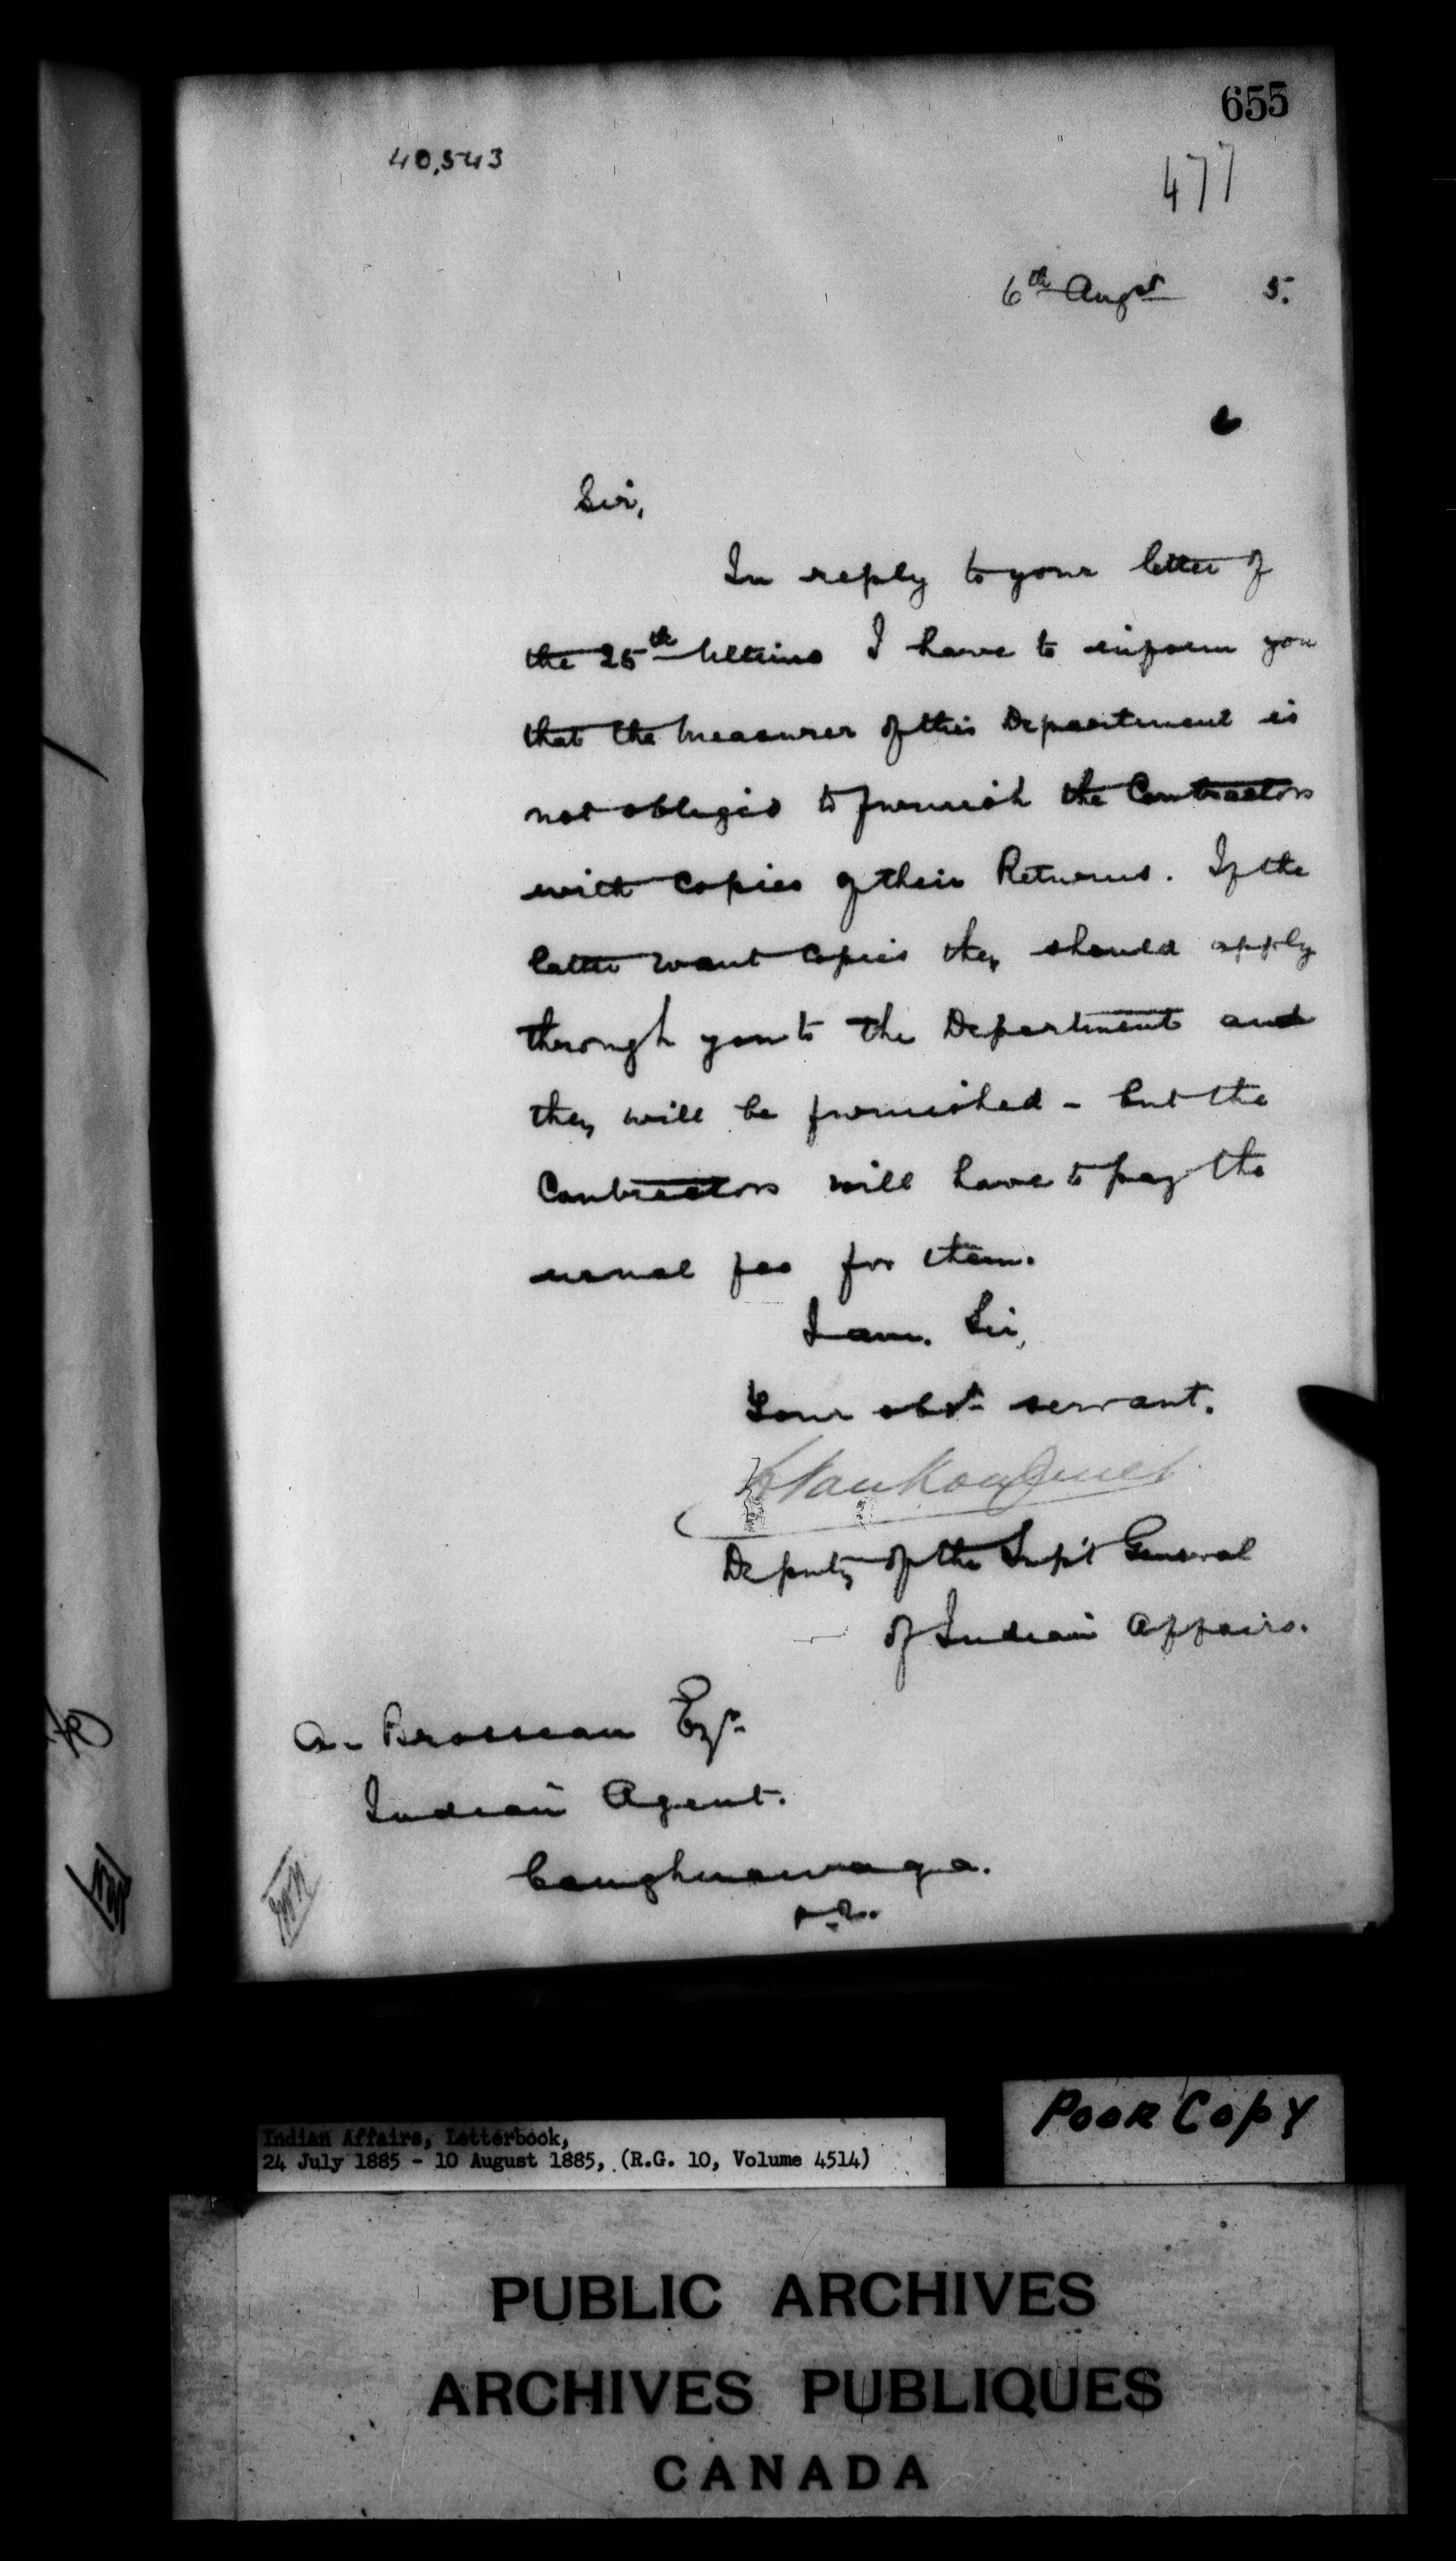 655
40,543
477
6th Augst 5.
Sir,
In reply to your letter of
the 25th Ultimo I have to inform you
that the Measurer of this Department is
not obliged to furnish the Contractors
with Copies of their Returns. If the
latter want Copies they should apply
through you to the Department and
they will be furnished - but the
Contractors will have to pay the
usual fee for them.
I am. Sir,
Your obdt servant.
L VanKoughnet
Deputy of the Supt General
of Indian Affairs.
A. Brosseau Esqr.
Indian Agent.
Caughnawaga.
P.Q.
Poor Copy
Indian Affairs, Letterbook,
24 July 1885 - 10 August 1885, (R.G. 10, Volume 4514)
PUBLIC ARCHIVES
ARCHIVES PUBLIQUES
CANADA